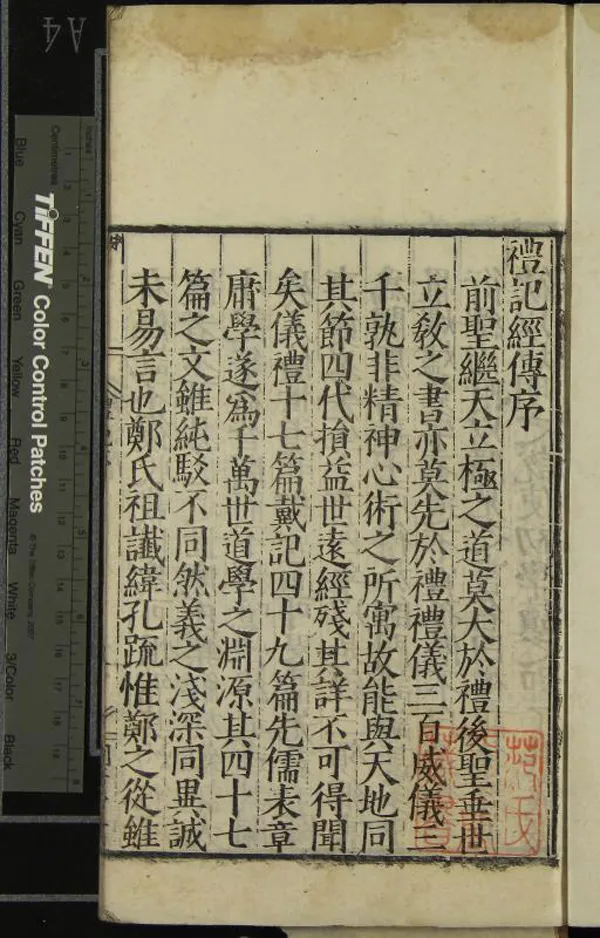 禮記經傳序
前聖繼天立極之道莫大於禮後聖垂世
立敎之書亦莫先於禮禮儀三百威儀三
千孰非精神心術之所寓故能與天地同
其節四代損益世遠經殘其詳不可得聞
矣儀禮十七篇戴記四十九篇先儒表章
庸學遂爲千萬世道學之淵源其四十七
篇之文雖純駁不同然義之淺深同異誠
未易言也鄭氏祖讖緯孔疏惟鄭之從雖
A4
Inches
Centimetres
TIFFEN Color Control Patches
© The Tiffen Company, 2007
Blue
Cyan
Green
Yellow
Red
Magenta
White
3/Color
Black